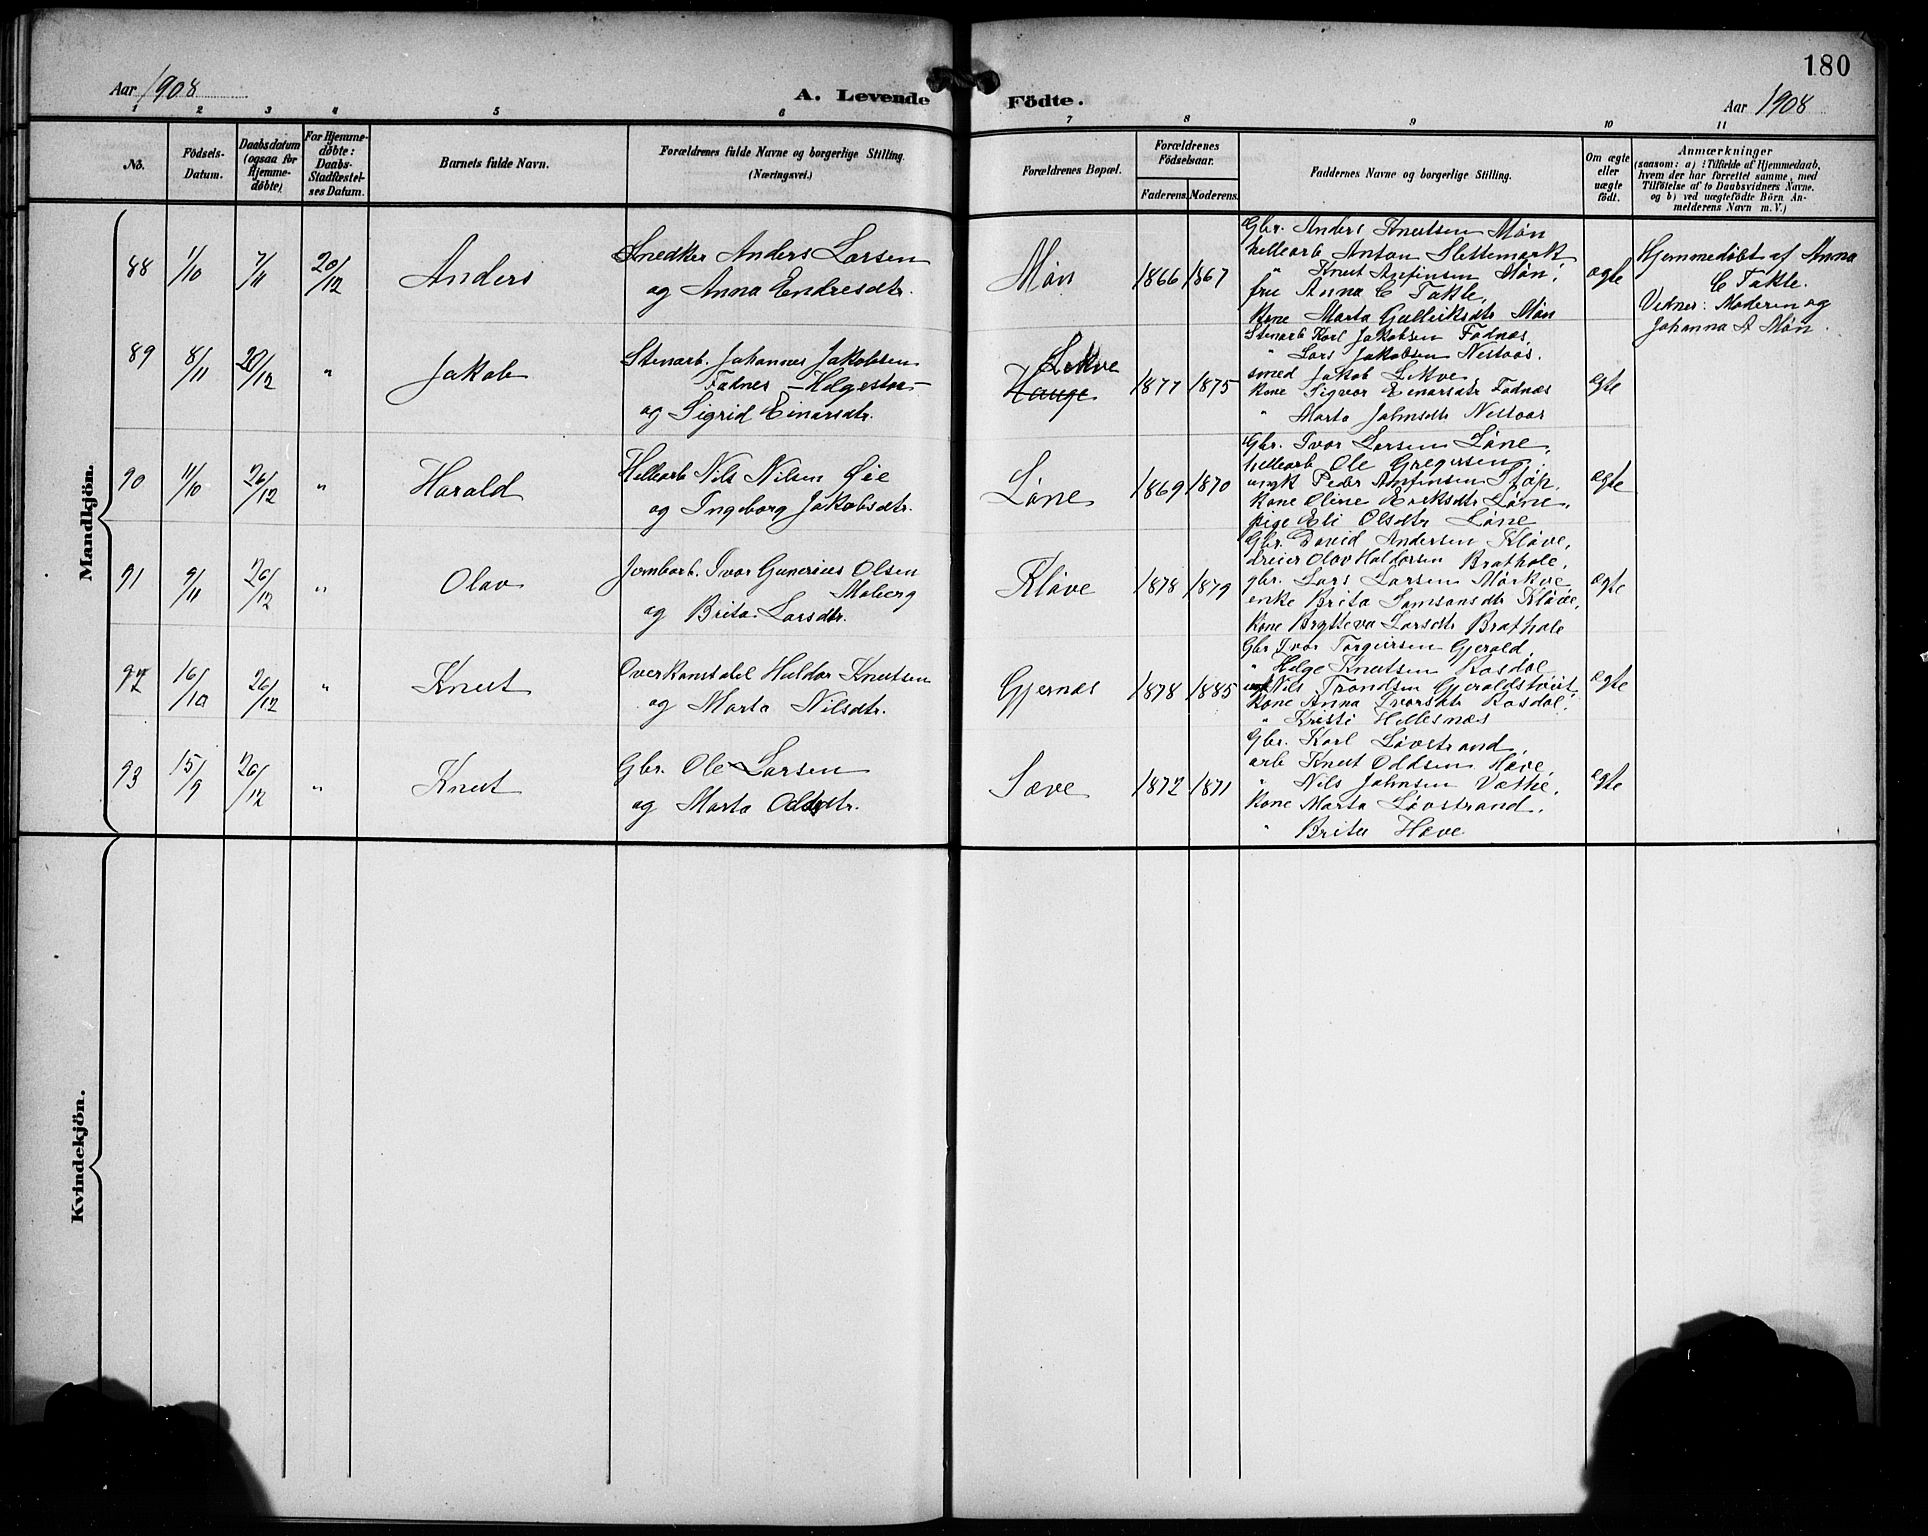 180
Aar 1908
A. Levende Födte.
Aar 1908
1 2 3 4 5 6 7 8 9 10 11
No.
Födsels-
Datum.
Daabsdatum
(ogsaa for
Hjemme-
døbte)
For Hjemme-
døbte:
Daabs-
Stadfæstel-
ses Datum.
Barnets fulde Navn.
Forældrenes fulde Navne og borgerlige Stilling.
(Næringsvei.)
Forældrenes Bopæl.
Forældrenes
Födselsaar.
Faderens. Moderens.
Faddernes Navne og borgerlige Stilling.
Om ægte
eller
uægte
födt.
Anmærkninger
(saasom: a) i Tilfælde af Hjemmedaab,
hvem der har forrettet samme, med
Tilföielse af to Daabsvidners Navne.
og b) ved uægtefödte Börn An-
melderens Navn m. V.)
Mandkjön.
88 1/10 7/11 20/12 Anders
Snedker Anders Larsen
og Anna Endresdtr.
Møn 1866 1867
Gbr. Anders Knutsen Møn
hellearb Anton Slettemark
" Knut Anfinsen Møn,
fru Anna C Takle,
Kone Marta Gulleiksdtr Møn
ægte
Hjemmedøbt af Anna
C Takle.
Vidner: Moderen og
Johanna A Møn.
89 8/11 20/12 " Jakob
Stenarb. Johannes Jakobsen
Fadnes - Helgestae -
og Sigrid Einarsdtr.
Lekve
Hauge
1877 1875
Stenarb Karl Jakobsen Fadnæs,
" Lars Jakobsen Nestaas.
smed Jakob Lekve
Kone Sigvor Einarsdtr Fadnæs
" Marta Johnsdtr Nestaas
ægte
90 11/10 26/12 " Harald
Hellearb Nils Nilsen Øie
og Ingeborg Jakobsdtr.
Løne 1869 1870
Gbr. Ivar Larsen Løne,
hellearb Ole Gregersen,
ungk Peder Anfinsen
Kone Oline Eriksdtr Løne,
pige Eli Olsdtr Løne
ægte
91 9/11 26/12 " Olav
Jernbarb. Ivar Gunerius Olsen
Moberg
og Brita Larsdtr.
Kløve 1878 1879
Gbr. David Andersen Kløve,
dreier Olav Haldorsen Brathole,
gbr. Lars Larsen Mørkve
enke Brita Samsonsdtr Kløve,
Kone Bryteva Larsdtr Brathole
ægte
92 16/10 26/12 " Knut
Overkonstabel Haldor Knutsen
og Marta Nilsdtr.
Gjernæs 1878 1885
Gbr Ivar Torgiersen Gjerald,
" Helge Knutsen Rosdal
ungk Nils Trondsen Gjeraldstveit,
Kone Anna Ivarsdtr Rosdal,
" Kristi Hellesnæs
ægte
93 15/9 26/12 " Knut
Gbr. Ole Larsen
og Marta Oddsdtr.
Sæve 1872 1871
Gbr. Karl Løvstrand,
arb Knut Oddsen Hæve,
" Nils Johnsen Væthe,
Kone Marta Løvstrand,
" Brita Hæve
ægte
Kvindekjön.